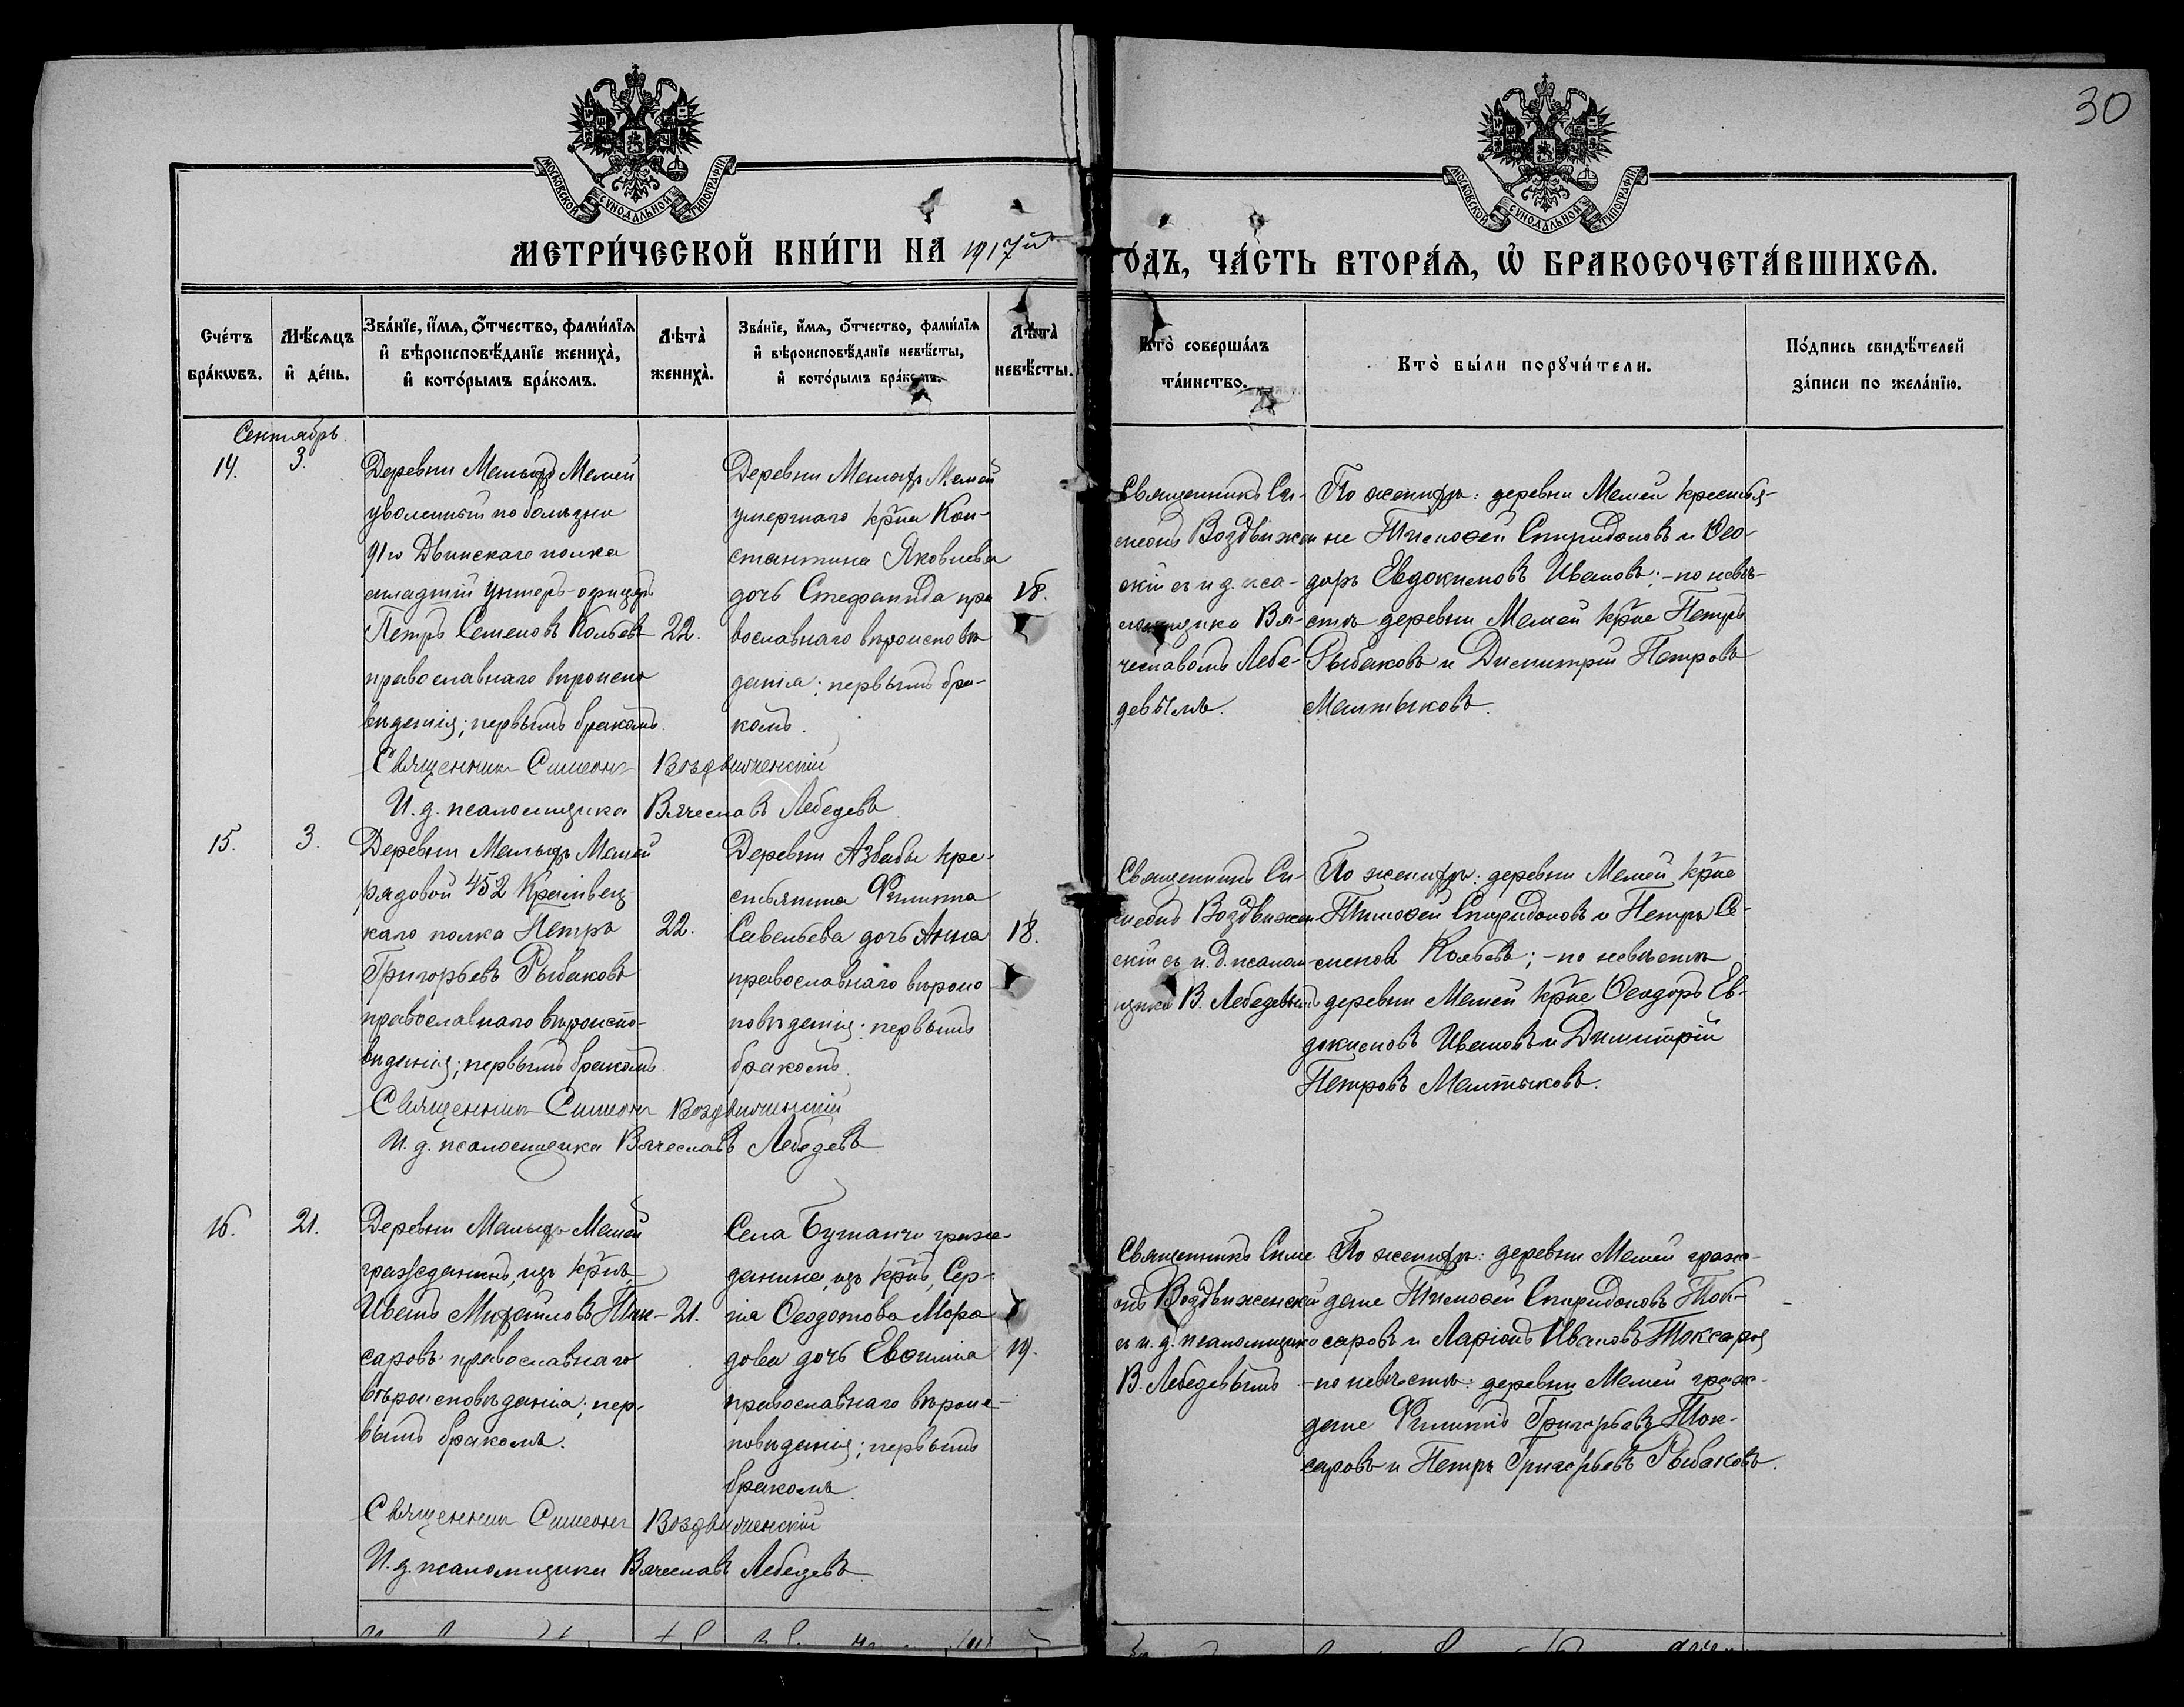 30
МОСКОВСКОЙ СѴНОДАЛЬНОЙ ТИПОГРАФІИ
МОСКОВСКОЙ СѴНОДАЛЬНОЙ ТИПОГРАФІИ
МЕТРИ́ЧЕСКОЙ КНИ́ГИ НА 1917й
ГО́ДЪ, ЧА́СТЬ ВТОРА́Ѧ, Ѡ҆ БРАКОСОЧЕТА́ВШИХСѦ.
Сче́тъ бра́кѡвъ.
Мѣ́сѧцъ и҆ де́нь.
Зва́нїе, и҆́мѧ, ѻ҆́тчество, фами́лїѧ
и҆ вѣроисповѣ́данїе жениха̀,
и҆ кото́рымъ бра́комъ.
Лѣта̀ жениха̀.
Зва́нїе, и҆́мѧ, ѻ҆́тчество, фами́лїѧ
и҆ вѣроисповѣ́данїе невѣ́сты,
и҆ кото́рымъ бра́комъ.
Лѣта̀ невѣ́сты.
Кто̀ соверша́лъ
та́инство.
Кто̀ бы́ли порꙋчи́тели.
По́дпись свидѣ́телей
за́писи по жела́нїю.
Сентябрь.
14.
3.
Деревни Малыхъ Мамей
уволенный по болѣзни
91го Двинскаго полка
младшій унтеръ-офицеръ
Петръ Семеновъ Кольевъ
православнаго вѣроиспо
вѣданія; первымъ бракомъ.
22.
Деревни Малыхъ Мамей
умершаго кр̃на Кон-
стантина Яковлева
дочь Стефанида пра
вославнаго вѣроисповѣ
данія; первымъ бра-
комъ.
18.
Священникъ Си-
меонъ Воздвижен
скій съ и. д. пса-
ломщика Вя-
чеславомъ Лебе-
девымъ.
По женихѣ: деревни Мамей крестья-
не Тимоѳей Спиридоновъ и Ѳео-
доръ Евдокимовъ Ивановъ; - по невѣ-
стѣ деревни Мамей кр̃не Петръ
Рыбаковъ и Димитрій Петровъ
Малтыковъ.
Священникъ Симеонъ Воздвиженскій
И. д. псаломщика Вячеславъ Лебедевъ
15.
3.
Деревни Малыхъ Мамей
рядовой 452 Кролявец
каго полка Петръ
Григорьевъ Рыбаковъ
православнаго вѣроиспо-
вѣданія; первымъ бракомъ.
22.
Деревни Азбабы кре-
стьянина Филиппа
Савельева дочь Анна
православнаго вѣроис-
повѣданія; первымъ
бракомъ.
18.
Священникъ Си-
меонъ Воздвижен
скій съ и. д. псалом
щика В. Лебедевымъ
По женихѣ: деревни Мамей кр̃не
Тимоѳей Спиридоновъ и Петръ Се-
меновъ Кольевъ; - по невѣстѣ
деревни Мамей кр̃не Ѳеодоръ Ев-
докимовъ Ивановъ и Димитрій
Петровъ Малтыковъ.
Священникъ Симеонъ Воздвиженскій
И. д. псаломщика Вячеславъ Лебедевъ
16.
21.
Деревни Малыхъ Мамей
гражданинъ, изъ кр̃нъ,
Иванъ Михайловъ Ток-
саровъ православнаго
вѣроисповѣданія; пер-
вымъ бракомъ.
21.
Села Бутанчи граж-
данина, изъ кр̃нъ, Сер-
гія Ѳеодотова Мора
дова дочь Евѳимія
православнаго вѣроис-
повѣданія; первымъ
бракомъ.
19.
Священникъ Симе
онъ Воздвиженскій
съ и. д. псаломщика
В. Лебедевымъ
По женихѣ: деревни Мамей граж-
дане Тимоѳей Спиридоновъ Ток-
саровъ и Ларіонъ Ивановъ Токсаровъ
- по невѣстѣ: деревни Мамей граж-
дане Филиппъ Григорьевъ Ток-
саровъ и Петръ Григорьевъ Рыбаковъ.
Священникъ Симеонъ Воздвиженскій
И. д. псаломщика Вячеславъ Лебедевъ